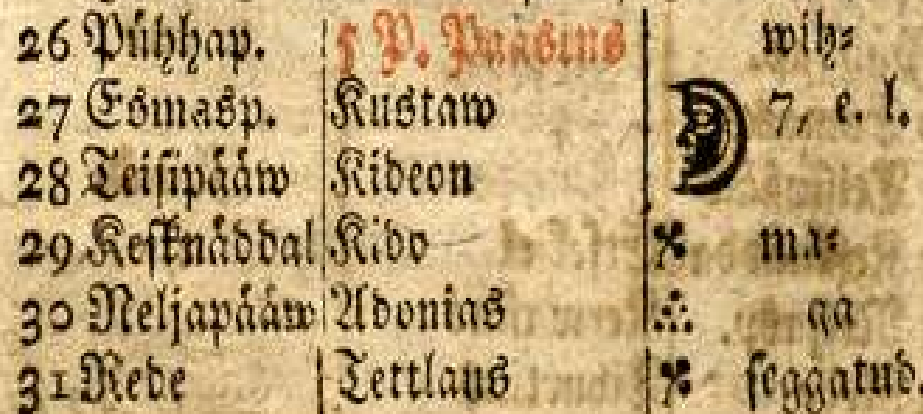 26 Pühhap. 5 P. Paasius wih=
27 Esmasp. Kustaw 7, e. l.
28 Teisipääw Kideon
29 Kesknäddal Kido ma=
30 Neljapääw Adonias ga
31 Rede Tertlaus seggatud.